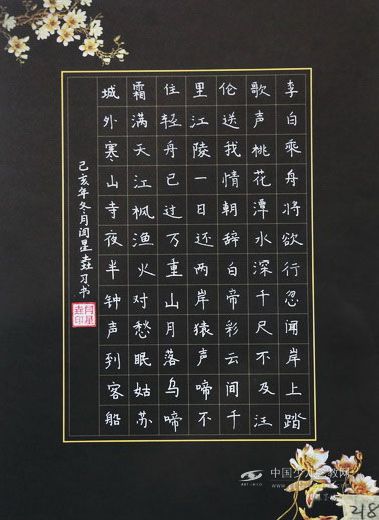 李白乘舟将欲行忽闻岸上踏
歌声桃花潭水深千尺不及汪
伦送我情朝辞白帝彩云间千
里江陵一日还两岸猿声啼不
住轻舟已过万重山月落乌啼
霜满天江枫渔火对愁眠姑苏
城外寒山寺夜半钟声到客船
己亥年冬月闫星垚习书
闫星垚印
218